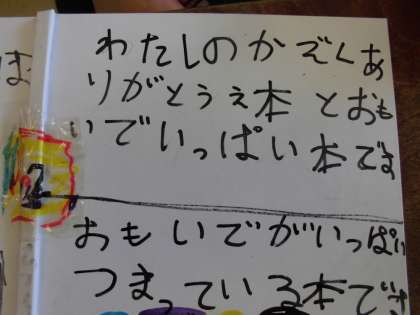 わたしのかぞくあ
りがとうえ本とおも
いでいっぱい本です
2
おもいでがいっぱい
つまっている本で